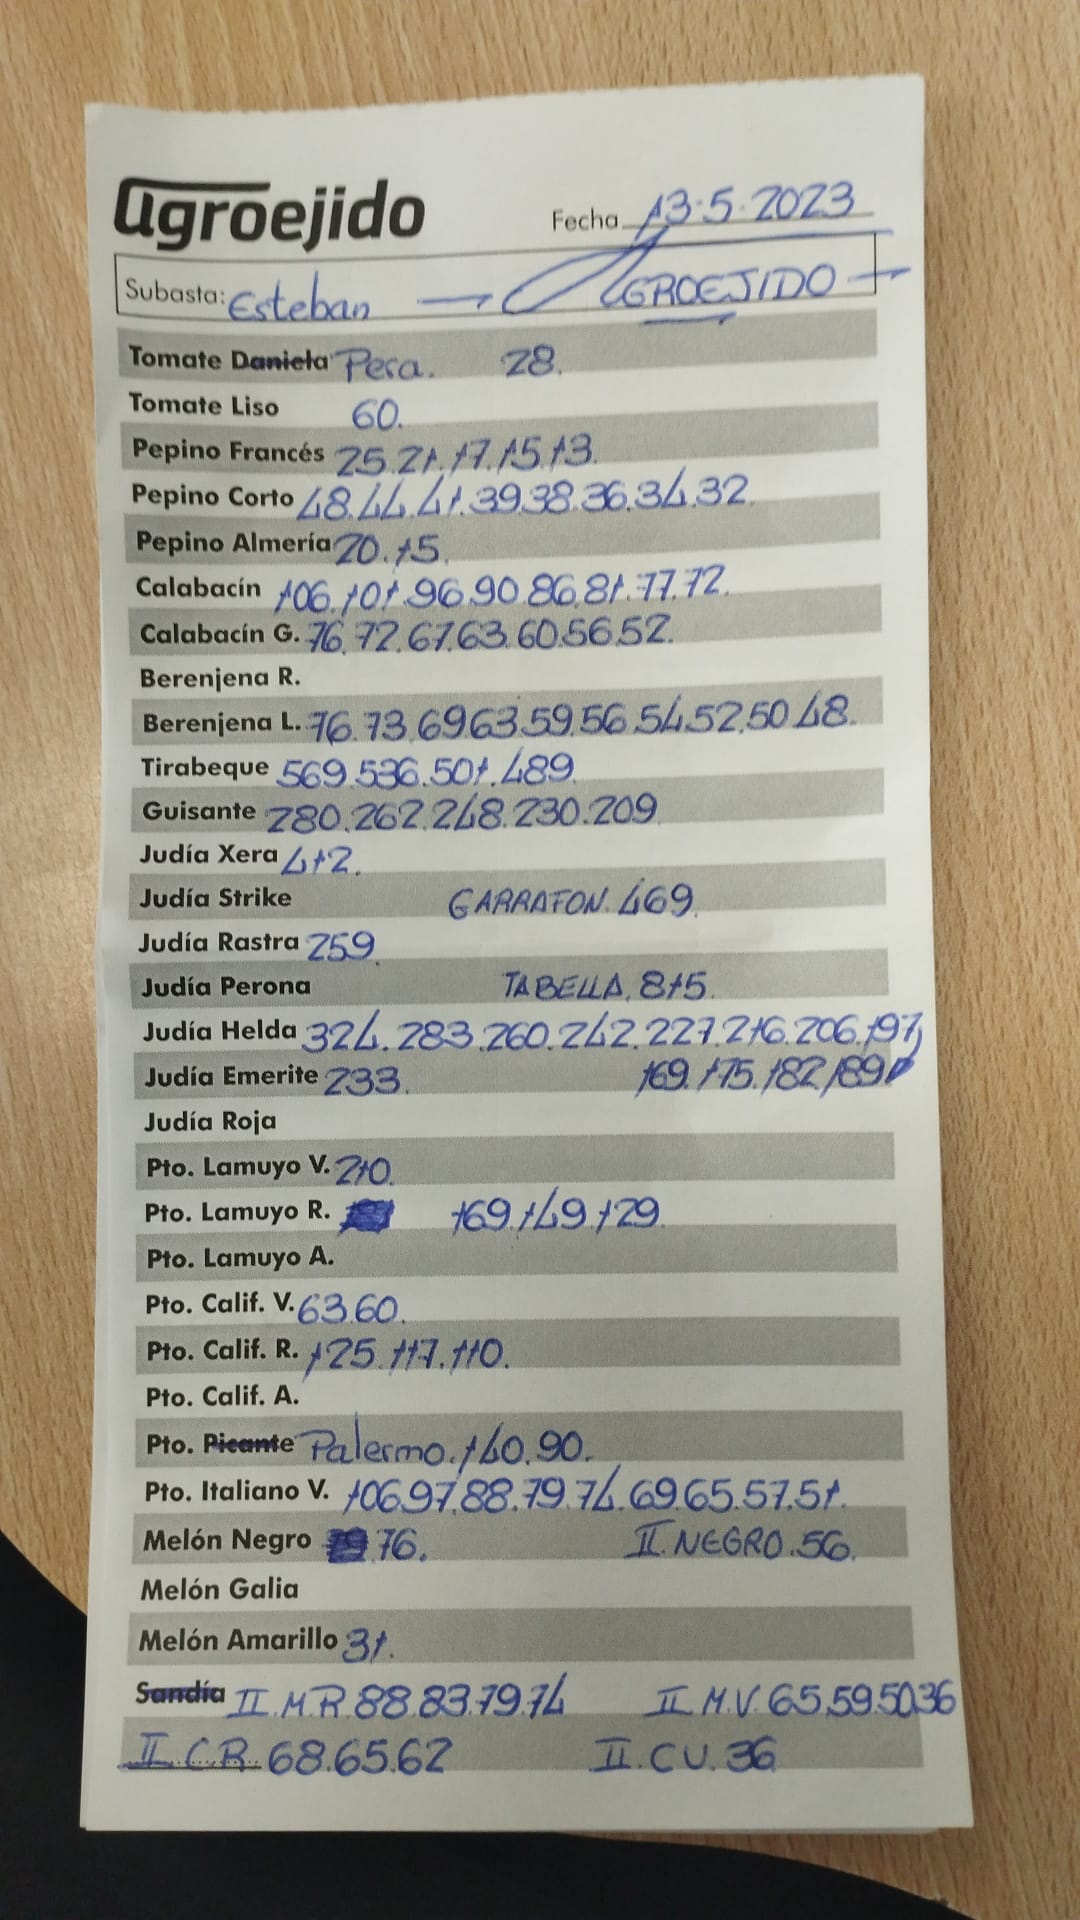 agroejido
Fecha 13.5.2023
Subasta: Esteban → AGROEJIDO →
Tomate Daniela Pera. 28.
Tomate Liso 60.
Pepino Francés 25.21.17.15.13.
Pepino Corto 48.44.41.39.38.36.34.32.
Pepino Almería 20.15.
Calabacín 106.101.96.90.86.81.77.72.
Calabacín G. 76.72.67.63.60.56.52.
Berenjena R.
Berenjena L. 76.73.69.63.59.56.54.52.50.48.
Tirabeque 569.536.501.489.
Guisante 280.262.248.230.209
Judía Xera 412.
Judía Strike GARRAFON. 469.
Judía Rastra 259.
Judía Perona TABELLA. 815.
Judía Helda 324.283.260.242.227.216.206.197,
Judía Emerite 233. 169.175.182.189
Judía Roja
Pto. Lamuyo V. 210.
Pto. Lamuyo R. 169.149.129.
Pto. Lamuyo A.
Pto. Calif. V. 63.60.
Pto. Calif. R. 125.117.110.
Pto. Calif. A.
Pto. Picante Palermo. 140.90.
Pto. Italiano V. 106.97.88.79.74.69.65.57.51.
Melón Negro 76. II. NEGRO. 56.
Melón Galia
Melón Amarillo 31.
Sandía II. M.R. 88.83.79.74 II. M.V. 65.59.50.36
II. C R. 68.65.62 II. CU. 36